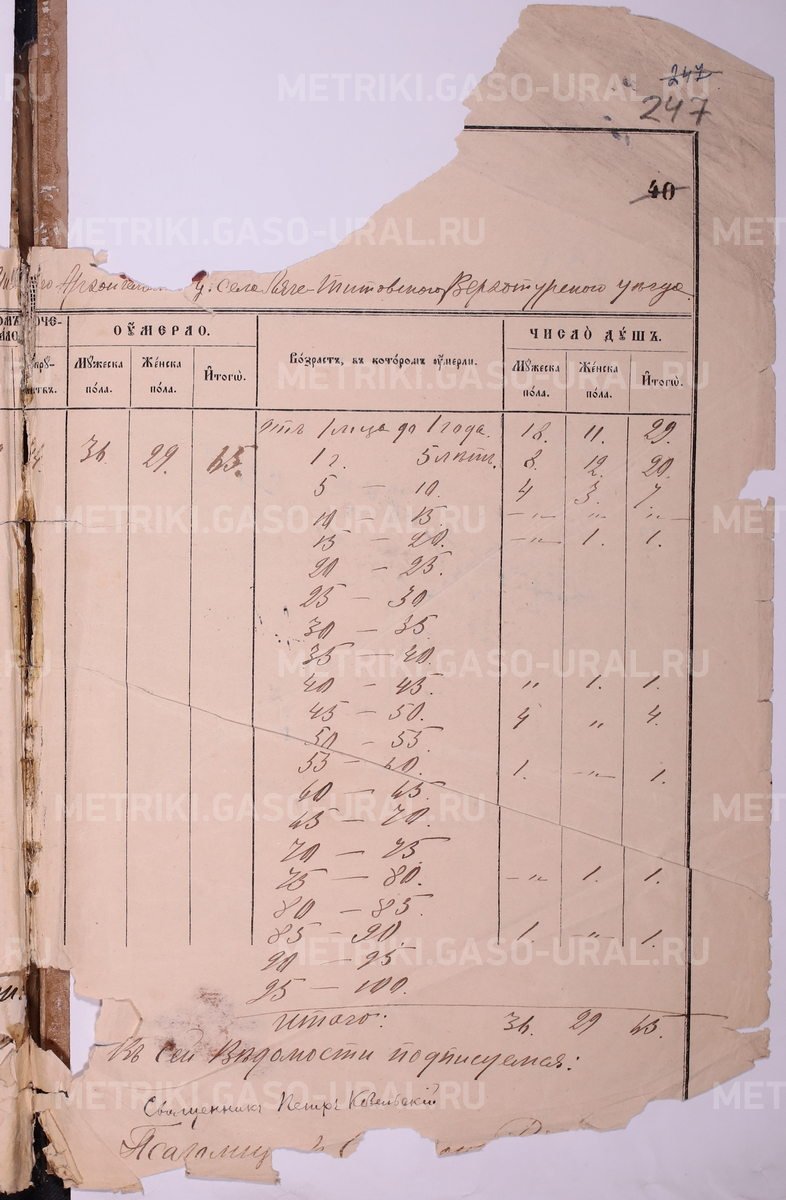 247
247
40
Архангел ц. села Ляче-Титовского Верхотурского уезда
ОУМЕРЛО.
ЧИСЛО ДУШЪ.
Мужеска пола. Женска пола. Итого.
Возрастъ, въ которомъ оумерли.
Мужеска пола. Женска пола. Итого.
Отъ 1 м-ца до 1 года. 18. 11. 29.
36. 29. 65. 1 г. 5 летъ. 8. 12. 20.
5 — 10. 4 3. 7.
10 — 15. —„— „ „
15 — 20. —„— 1. 1.
20 — 25.
25 — 30
30 — 35.
35 — 40.
40 — 45. „ 1. 1.
45 — 50. 4 „ 4.
50 — 55.
55 — 60. 1. —„— 1.
60 — 65.
65 — 70.
70 — 75.
75 — 80. —„— 1. 1.
80 — 85.
85 — 90. 1. —„— 1.
90 — 95
95 — 100.
Итого: 36. 29 65.
Къ сей Ведомости подписуемся:
Священникъ Петръ Козельский
Псаломщ
METRIKI.GASO-URAL.RU